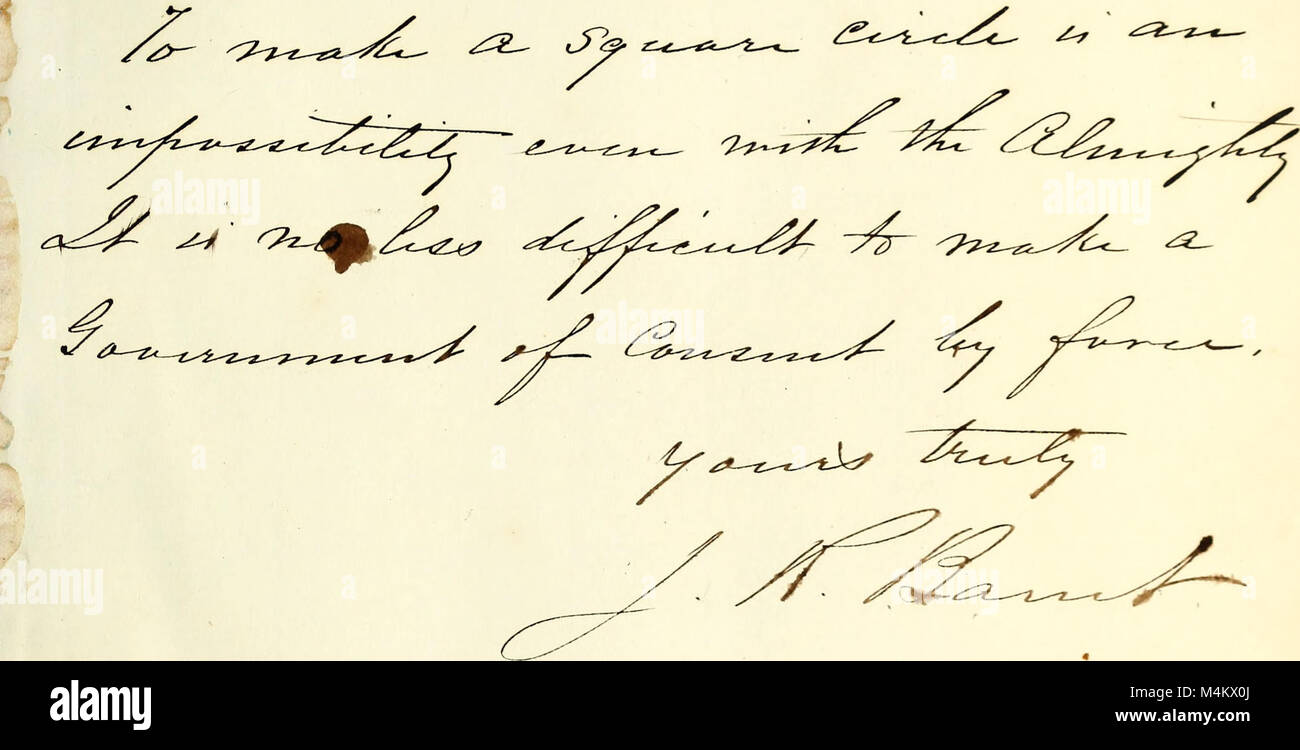 To make a square circle is an
impossibility even with the Almighty
It is no less difficult to make a
Government of Consent by force.
yours truly
J. R. Barret.
alamy
alamy stock photo
M4KX0J
www.alamy.com